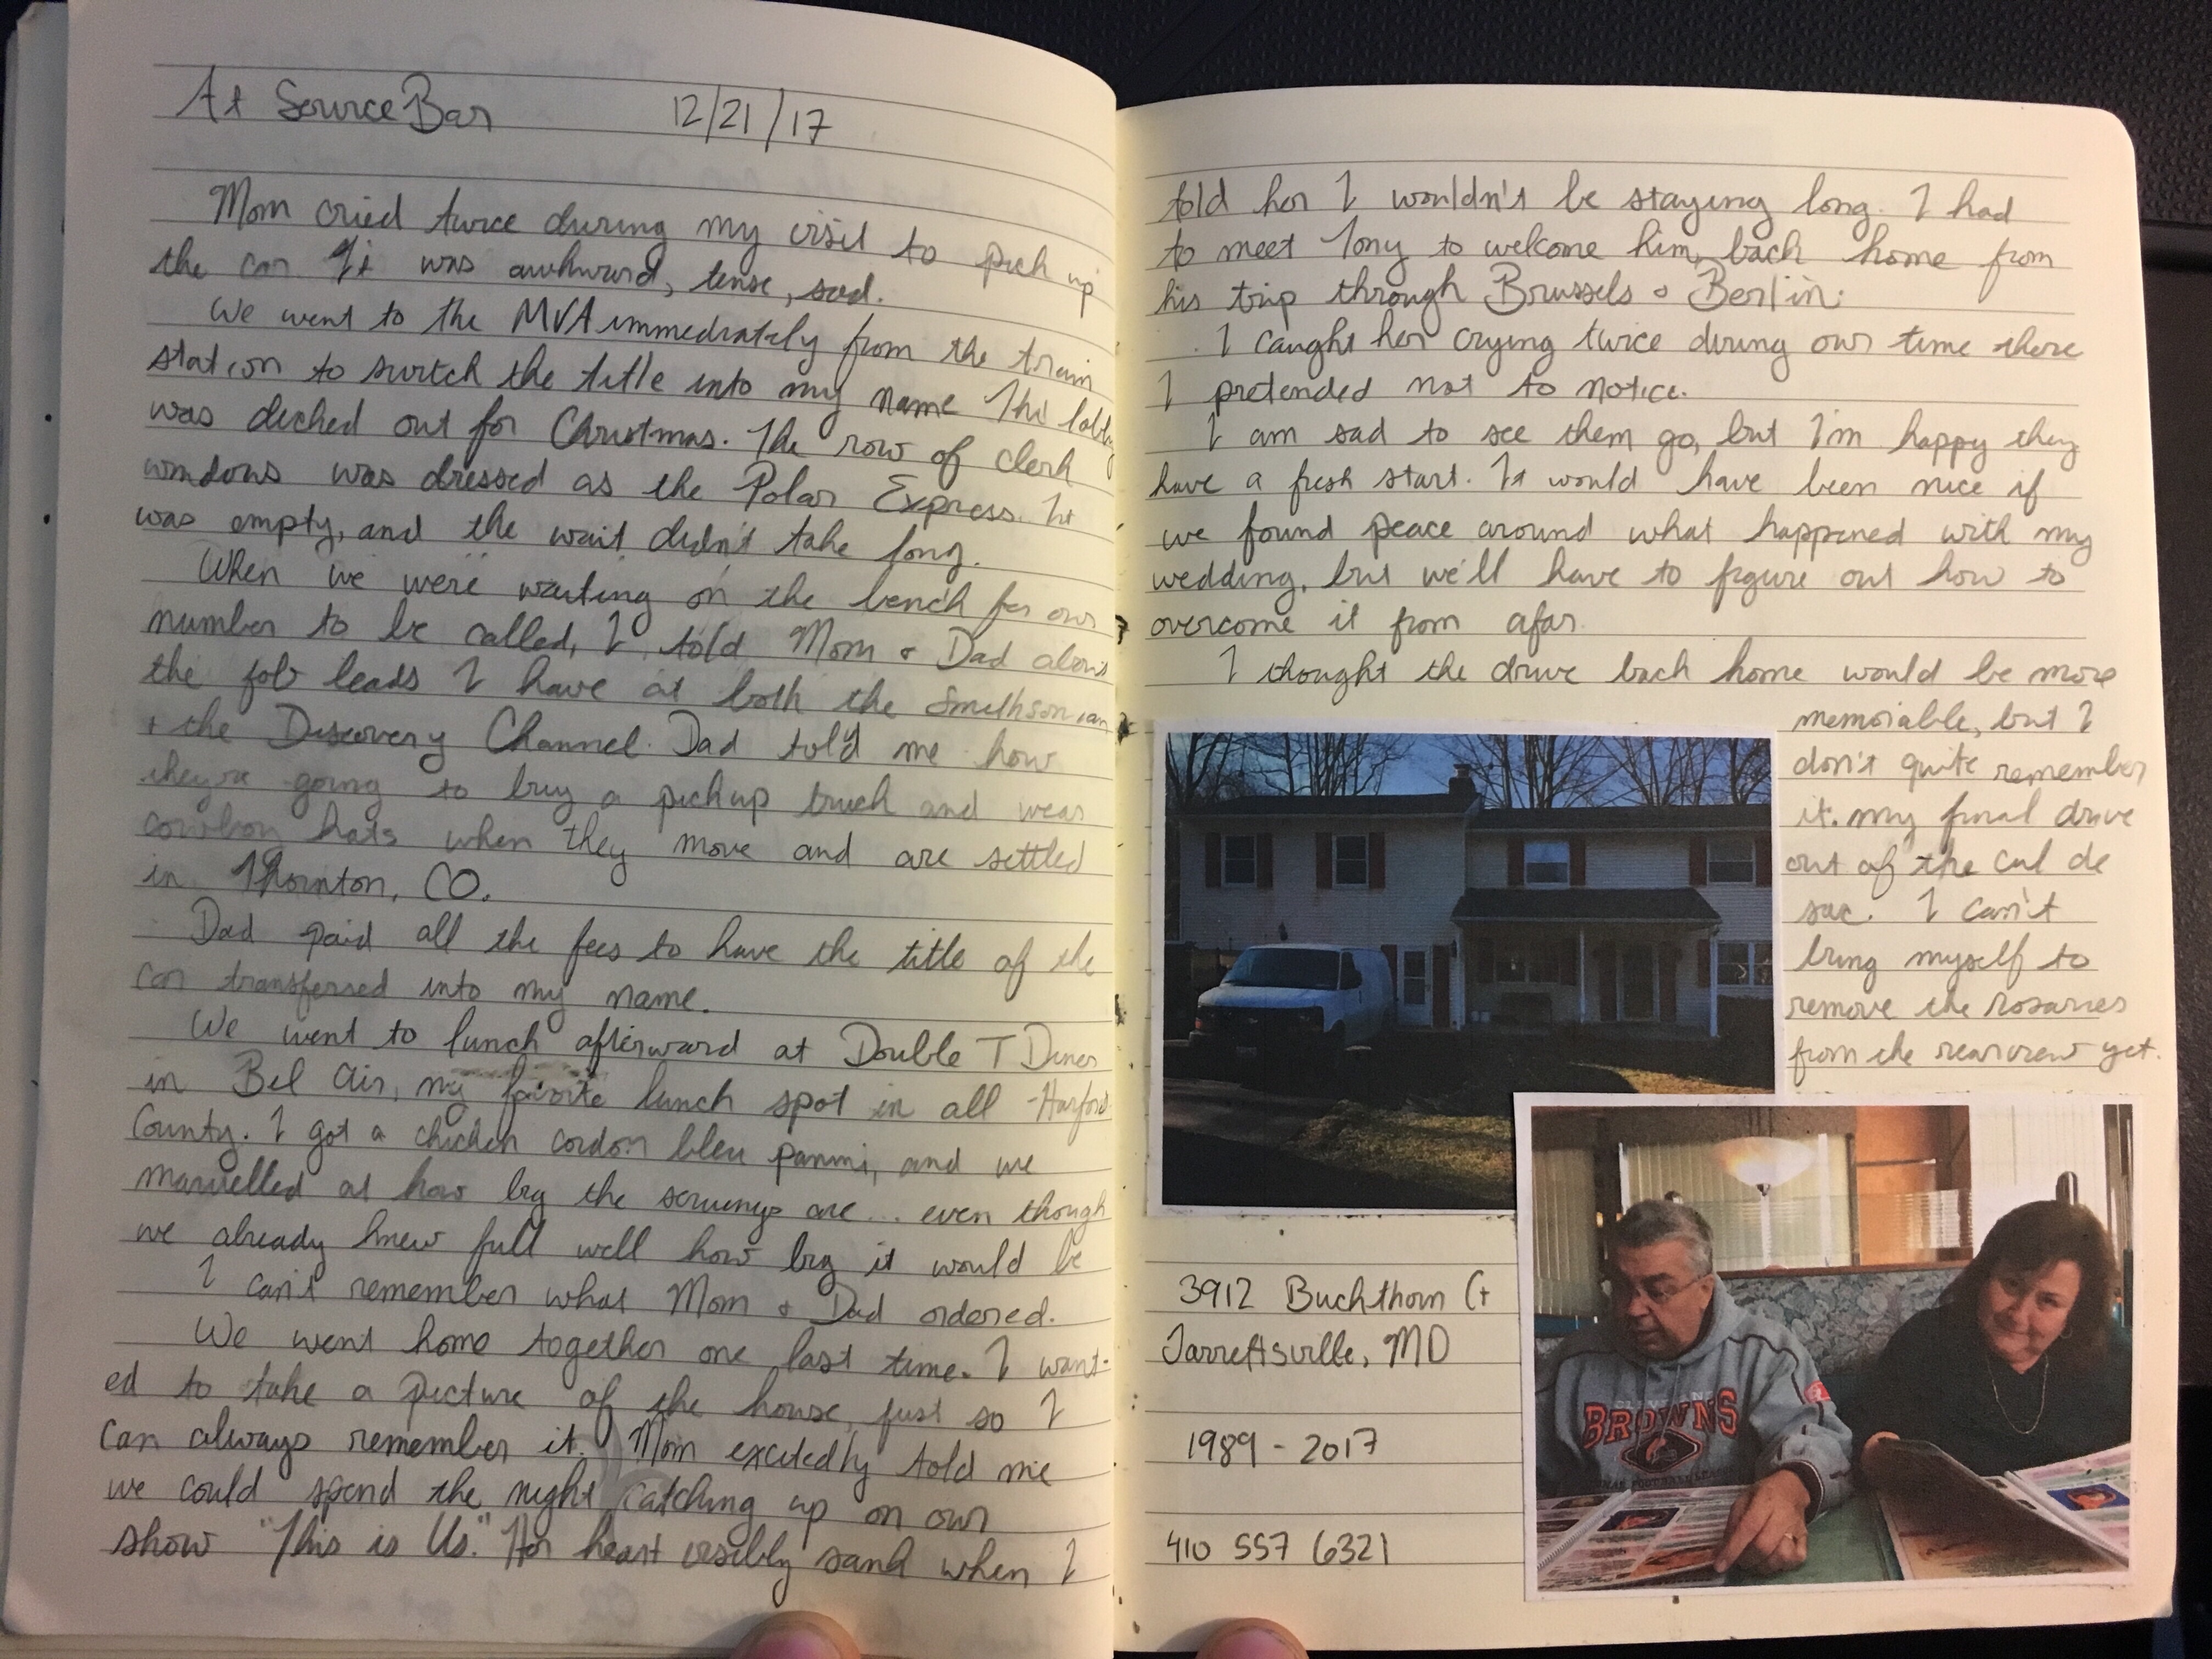 At SourceBar 12/21/17
Mom cried twice during my visit to pick up
the car. It was awkward, tense, sad.
We went to the MVA immediately from the train
station to switch the title into my name. The lobby
was decked out for Christmas. The row of clerk
windows was dressed as the Polar Express. It
was empty, and the wait didn't take long.
When we were waiting on the bench for our
number to be called, I told Mom & Dad about
the job leads I have at both the Smithsonian
+ the Discovery Channel. Dad told me how
they're going to buy a pickup truck and wear
cowboy hats when they move and are settled
in Thornton, CO.
Dad paid all the fees to have the title of the
car transferred into my name.
We went to lunch afterward at Double T Diner
in Bel Air, my favorite lunch spot in all Harford
County. I got a chicken cordon bleu panini, and we
marvelled at how big the servings are... even though
we already knew full well how big it would be
I can't remember what Mom & Dad ordered.
We went home together one last time. I want-
ed to take a picture of the house, just so I
can always remember it. Mom excitedly told me
we could spend the night catching up on our
show "This is Us." Her heart visibly sank when I
told her I wouldn't be staying long. I had
to meet Tony to welcome him back home from
his trip through Brussels & Berlin.
I caught her crying twice during our time there
I pretended not to notice.
I am sad to see them go, but I'm happy they
have a fresh start. It would have been nice if
we found peace around what happened with my
wedding, but we'll have to figure out how to
overcome it from afar.
I thought the drive back home would be more
memorable, but I
don't quite remember
it. my final drive
out of the cul de
sac. I can't
bring myself to
remove the rosaries
from the rearview yet.
3912 Buckthorn Ct
Jarrettsville, MD
1989 - 2017
410 557 6321
CLEVELAND
BROWNS
FOOTBALL